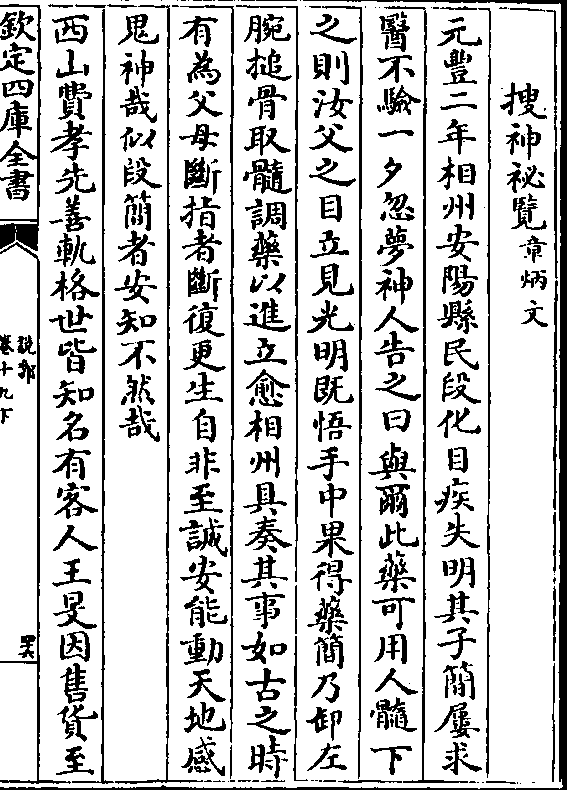 搜神祕覽章炳文
元豐二年相州安陽縣民段化目疾失明其子簡屢求
醫不驗一夕忽夢神人告之曰與爾此藥可用人髓下
之則汝父之目立見光明既悟手中果得藥簡乃卸左
腕搥骨取髓調藥以進立愈相州具奏其事如古之時
有為父母斷指者斷復更生自非至誠安能動天地感
鬼神哉似段簡者安知不然哉
西山費孝先善軌格世皆知名有客人王旻因售貨至
欽定四庫全書
說郛
卷十九下